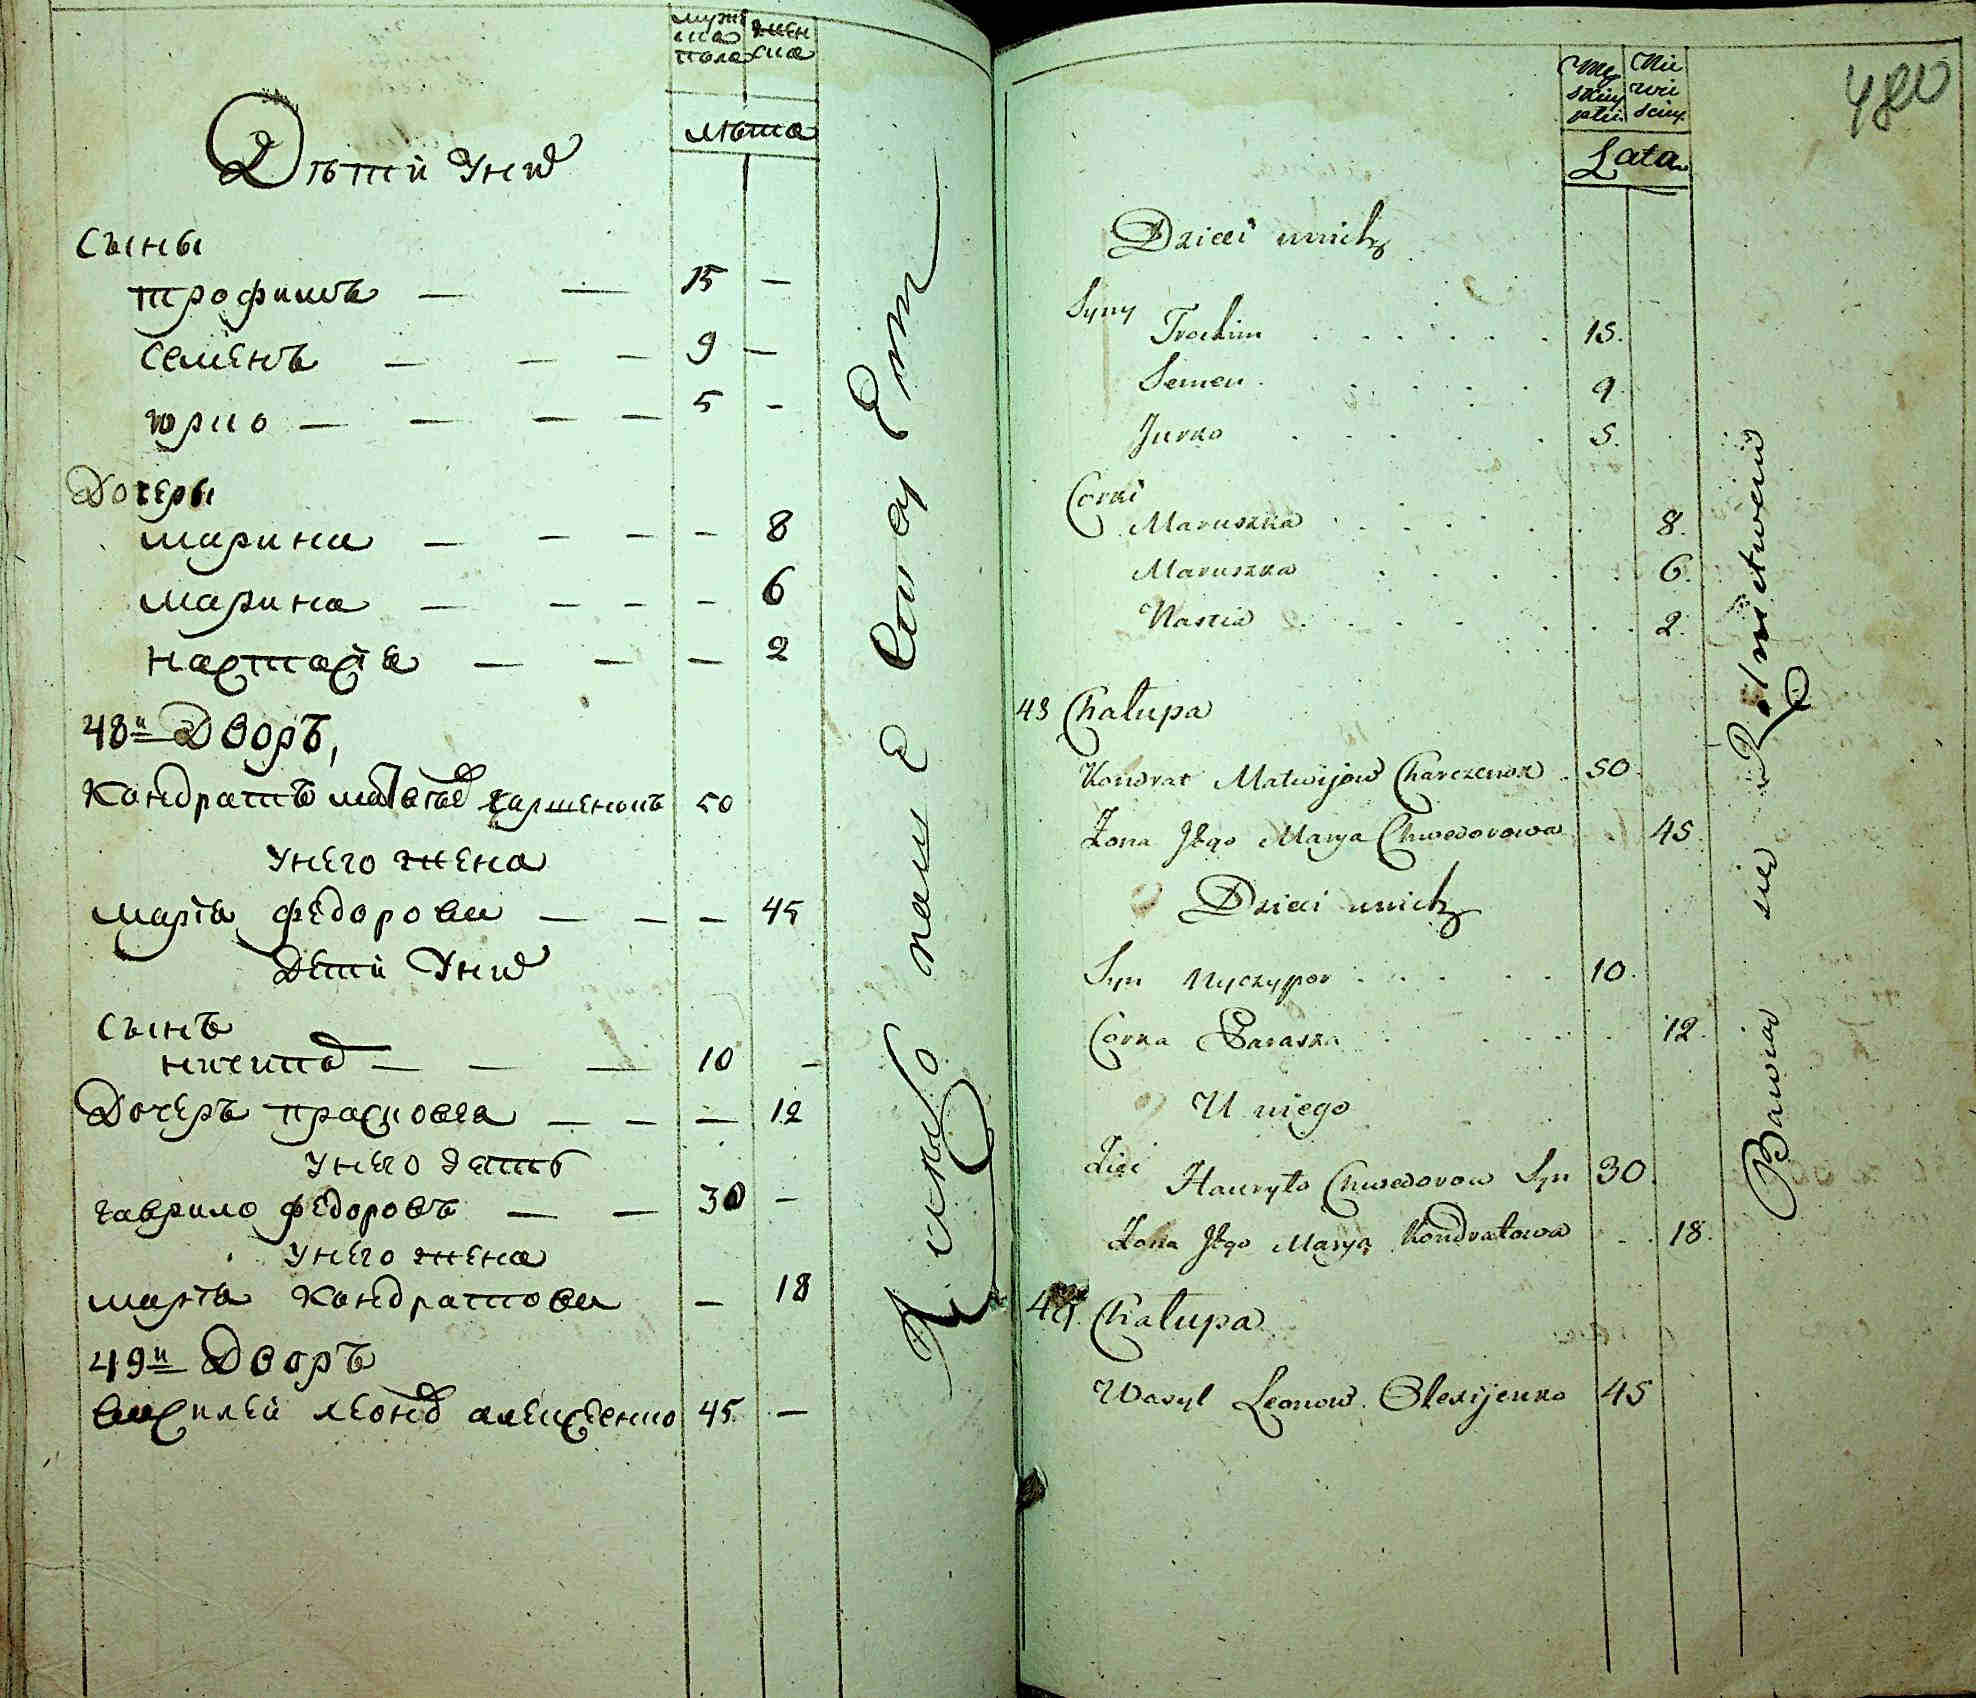 мужска пола
женска
лѣта
Дѣтѣй У них
Сыны
трофимъ — — 15 —
Семенъ — — — 9 —
юрко — — — — 5 —
Дочеры
марина — — — — 8
марина — — — — 6
настася — — — 2
48й Дворъ,
Кондратъ матвѣев харченокъ 50
Унего жена
маря федорова — — — 45
Дети У них
Сынъ
ничипор — — — 10 —
Дочеръ прасковея — — — 12
Унего зять
гаврило федоровъ — — 30 —
Унего жена
маря Кондратова — 18
49й Дворъ
василей леонов алексеенко 45 —
480
Męskiey płci
Niewiesciey
Lata
Dzieci unich
Syny
Trochim . . . . . . 15.
Semen . . . . . 9.
Jurko . . . . . 5.
Corki
Maruszka . . . . . . 8.
Maruszka . . . . . 6.
Nastia . . . . . . . 2.
48 Chałupa
Kondrat Matwijow Charczenok . 50.
Żona Jego Marya Chwedorowa 45.
Dzieci unich
Syn Nyczypor . . . . . 10.
Corka Paraska . . . . . 12.
U niego
Zięć Hawryło Chwedorow Syn 30.
Żona Jego Marya Kondratowa . . 18.
49. Chałupa
Wasyl Leonow Olexijenko 45
Bawiąc się Rolnictwem